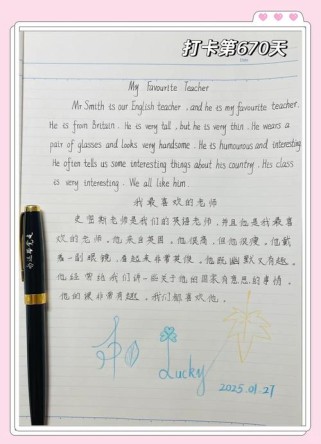 打卡第670天
My Favourite Teacher
Mr Smith is our English teacher, and he is my favourite teacher.
He is from Britain. He is very tall, but he is very thin. He wears a
pair of glasses and looks very handsome. He is humourous and interesting.
He often tells us some interesting things about his country. His class
is very interesting. We all like him.
我最喜欢的老师
史密斯老师是我们的英语老师,并且他是我最喜
欢的老师。他来自英国。他很高,但他很瘦。他戴
着一副眼镜,看起来非常英俊。他既幽默又有趣。
他经常给我们讲一些关于他的国家有意思的事情。
他的课非常有趣。我们都喜欢他。
Lucky
2025.01.27